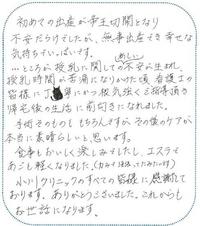 初めての出産が帝王切開となり
不安だらけでしたが、無事出産でき幸せな
気持ちでいっぱいです。
…ところが授乳に関しての不安が生まれ
授乳時間が苦痛になりかけた頃 看護士の
皆様に丁寧にかつ根気強くご指導頂き
帰宅後の生活に前向きになれました。
手術そのものももちろんですが、その後のケアが
本当に素晴らしいと思います。
食事もおいしく楽しみでしたし、エステで
あごも軽くなりました
小川クリニックのすべての皆様に感謝して
おります。ありがとうございました。これからも
お世話になります。